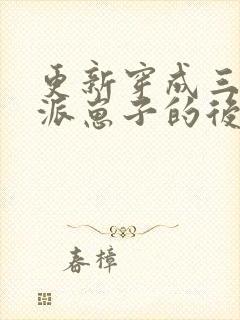 更新穿成三
派崽子的後
春樟